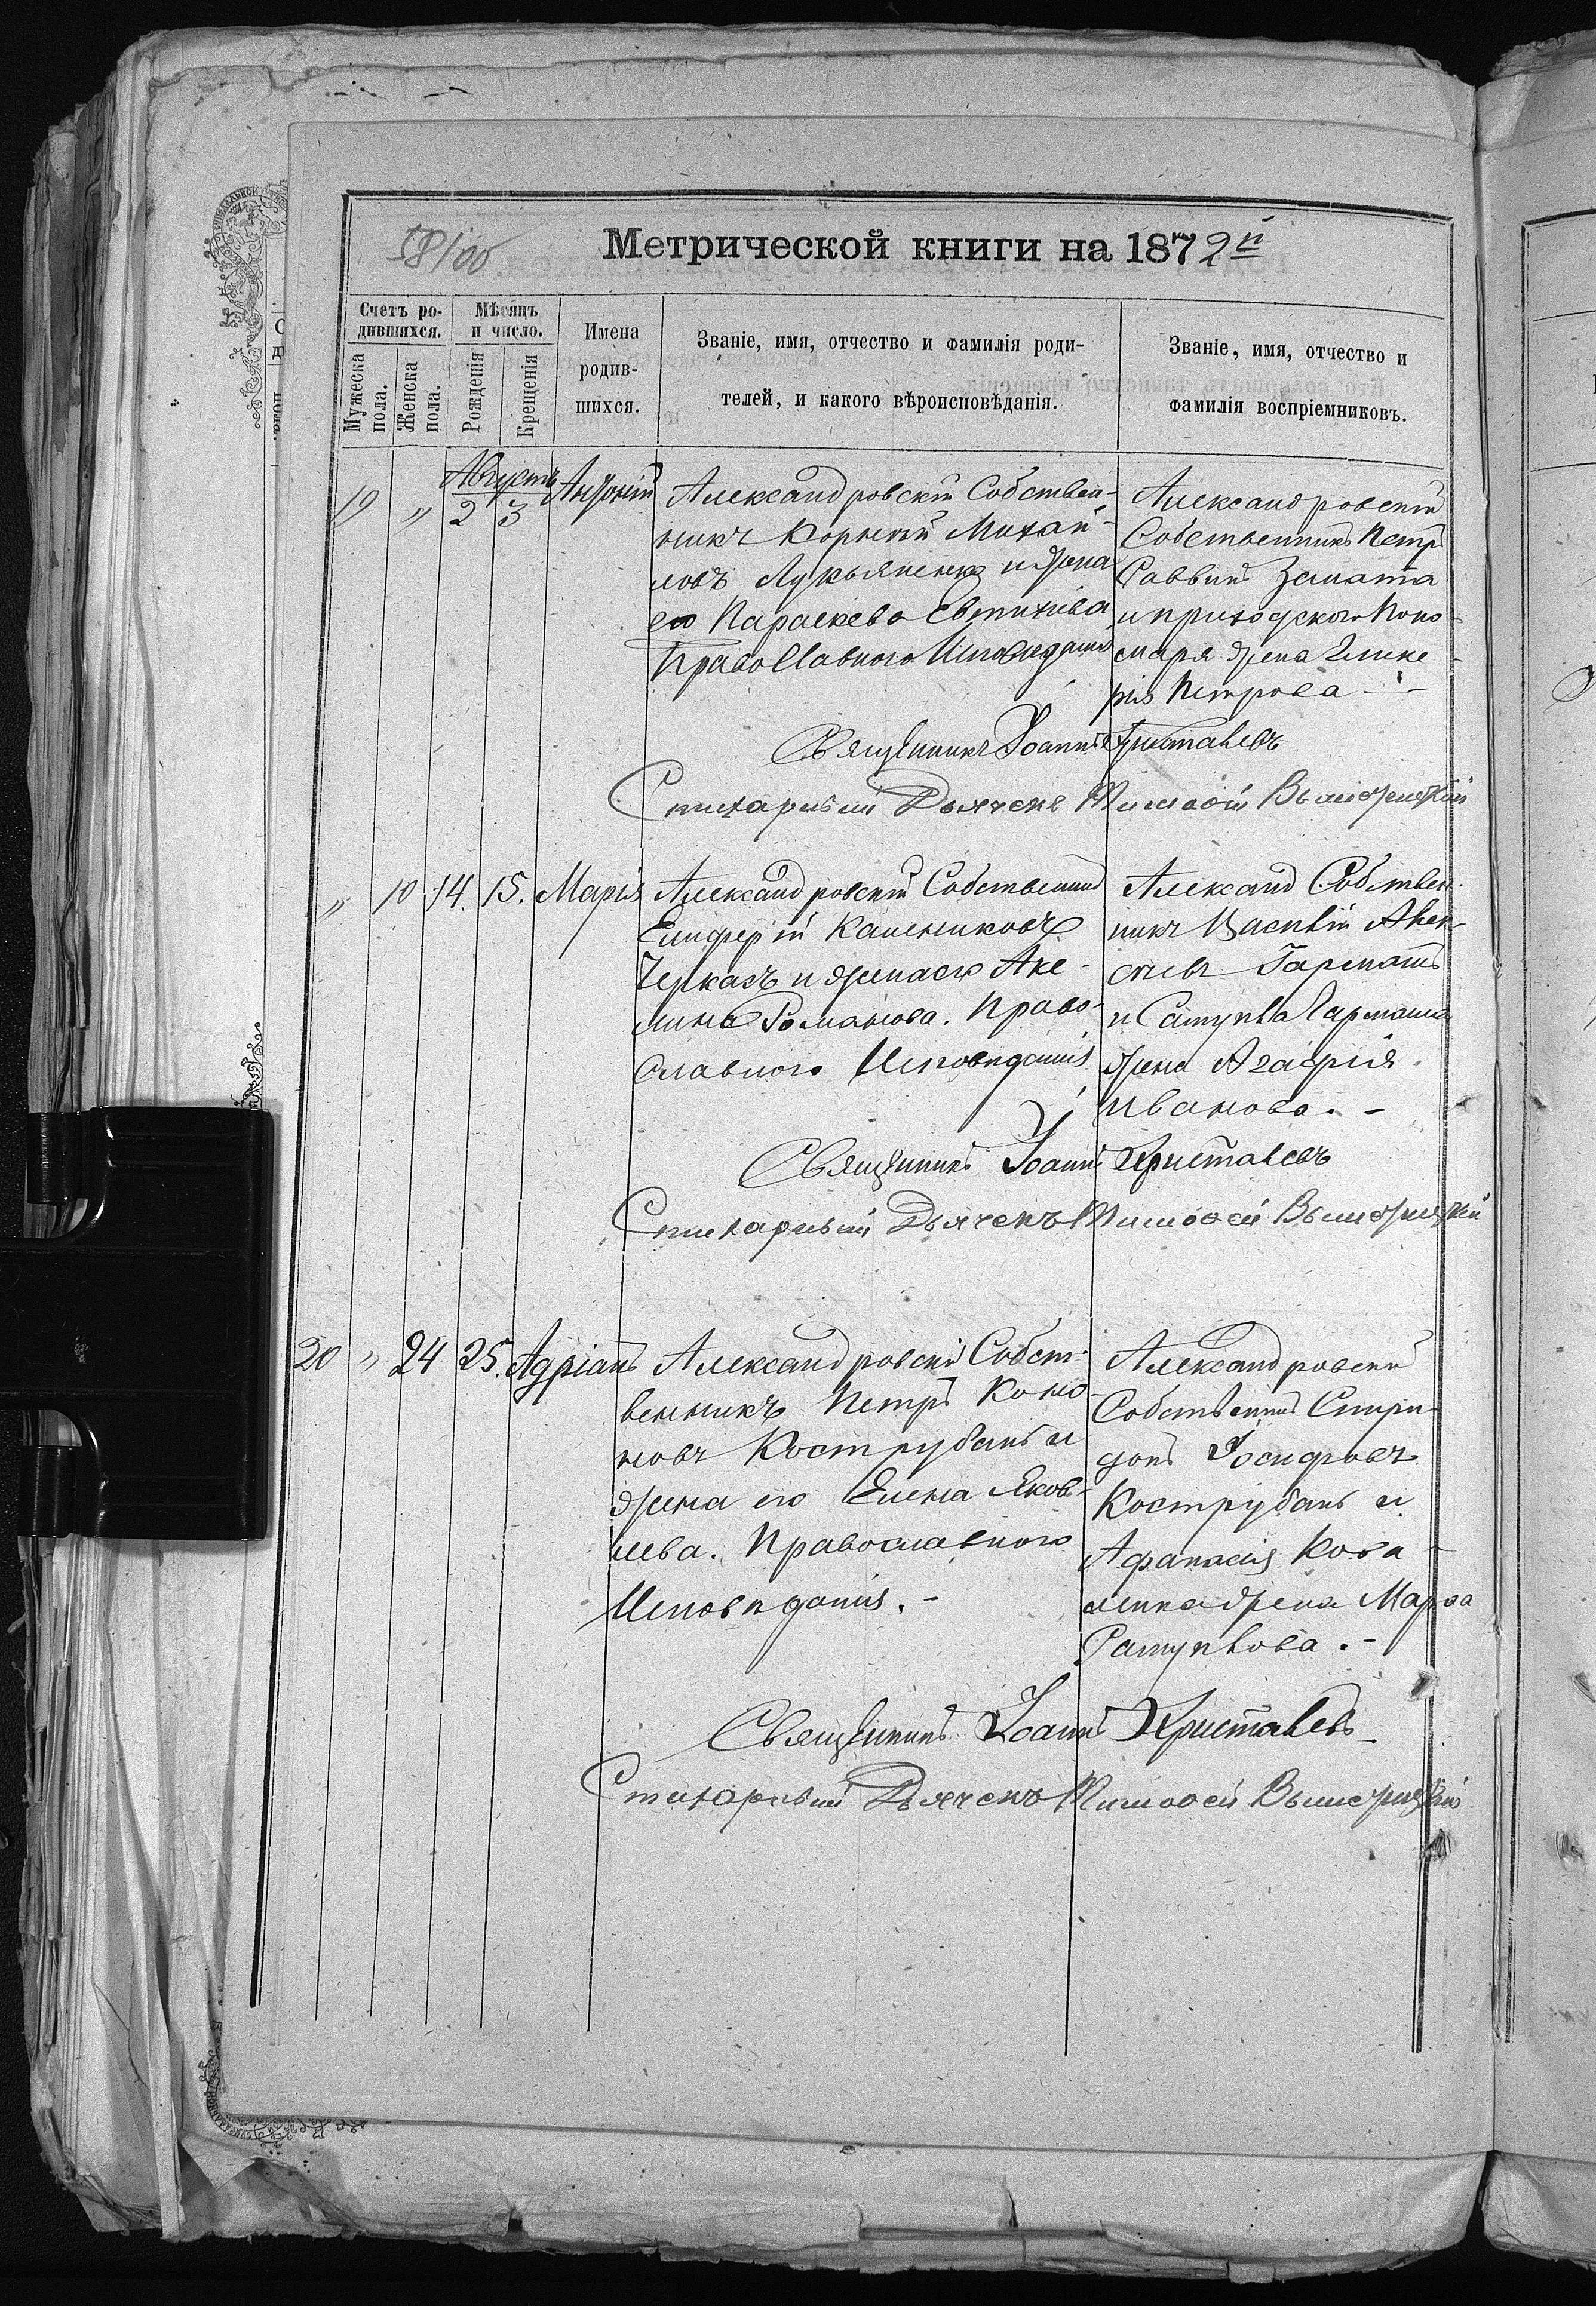 Метрической книги на 1872й
Счетъ ро-
дившихся.
Мѣсяцъ
и число.
Имена
родив-
шихся.
Званіе, имя, отчество и фамилія роди-
телей, и какого вѣроисповѣданія.
Званіе, имя, отчество и
фамилія воспріемниковъ.
Мужеска
пола.
Женска
пола.
Рожденія
Крещенія
Августъ
19 " 2 3
Александровскій Собствен-
никъ Корнилій Михай-
ловъ Лукьяненко и жена
его Параскева Евтихіева
Православного Исповѣданія
Александровскій
Собственникъ Петръ
Саввинъ
и приходского Поно-
маря жена Глике-
рія Петрова - -
Священникъ Іоаннъ Христалевъ
Стихарный Дьячекъ Тимоѳей
" 10 14. 15. Марія
Александровскій Собственникъ
Елиферій Калениковъ
Черказъ и жена его Аке-
лина Романова. Право-
славного Исповѣданія
Александ Собствен-
никъ Василій Авк-
стіевъ Гармашъ
и Самуила Гармаша
жена Агафія
Иванова. -
Священникъ Іоаннъ Христалевъ
Стихарный Дьячекъ Тимоѳей
20 " 24 25. Адріанъ
Александровскій Собст-
венникъ Петръ Коно-
новъ Кострубанъ и
жена его Елена Яков-
лева. Православного
Исповѣданія. -
Александровскій
Собственникъ Спири-
донъ Іосифовъ
Кострубанъ и
Афанасія Кова-
ленка жена Марѳа
Самуилова. -
Священникъ Іоаннъ Христалевъ
Стихарный Дьячекъ Тимоѳей